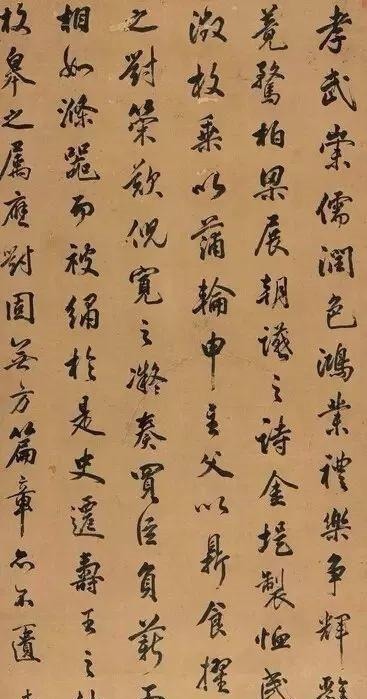 孝武崇儒潤色鴻業禮樂爭輝辭
競騖柏梁展朝讌之詩金堤製恤民
徵枚乘以蒲輪申主父以鼎食擢
之對策歎倪寬之凝奏買臣負薪而
相如滌器而被繡於是史遷壽王之
枚皋之属應對固無方篇章亦不匱